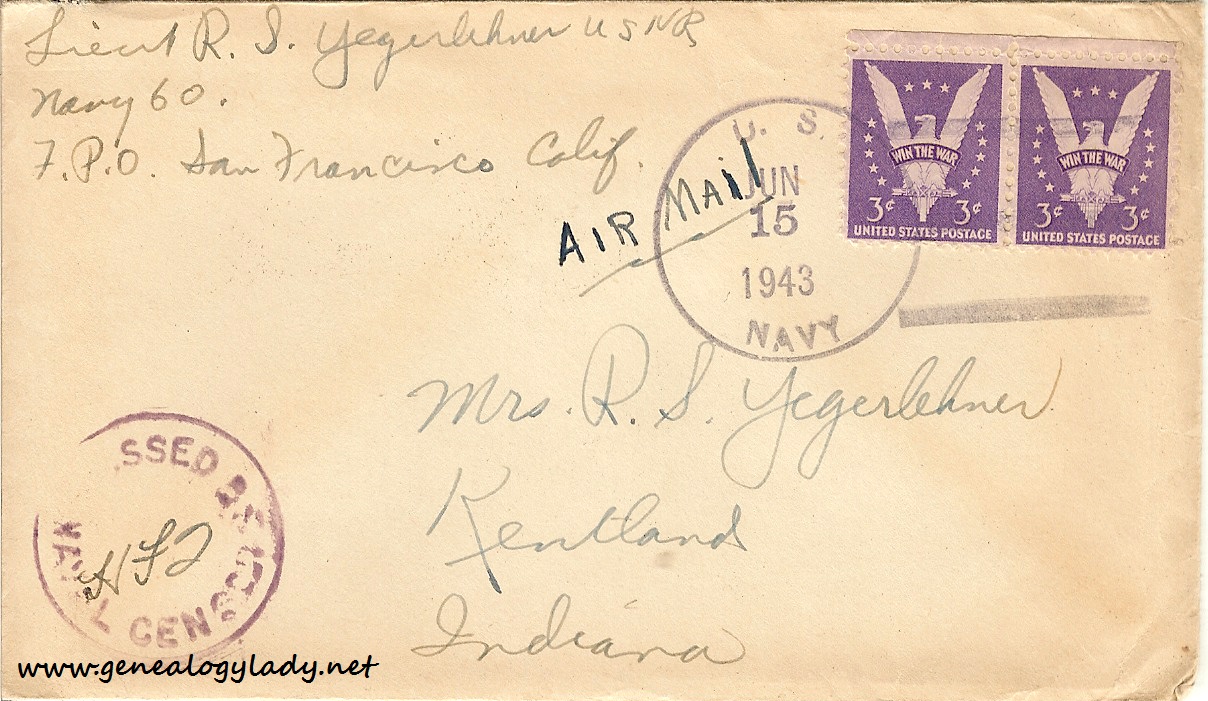 Lieut R. S. Yegerlehner USNR
Navy 60.
F.P.O. San Francisco Calif.
AIR MAIL
U. S.
JUN
15
1943
NAVY
WIN THE WAR
3¢ 3¢
UNITED STATES POSTAGE
WIN THE WAR
3¢ 3¢
UNITED STATES POSTAGE
Mrs. R. S. Yegerlehner
Kentland
Indiana
SSED BY
NAVAL CENSOR
www.genealogylady.net